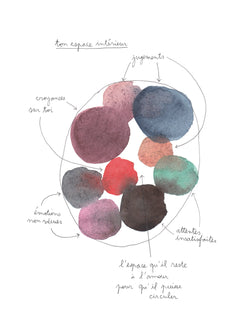 ton espace intérieur
jugements
croyances
sur toi
émotions
non vécues
attentes
insatisfaites
l'espace qu'il reste
à l'amour
pour qu'il puisse
circuler